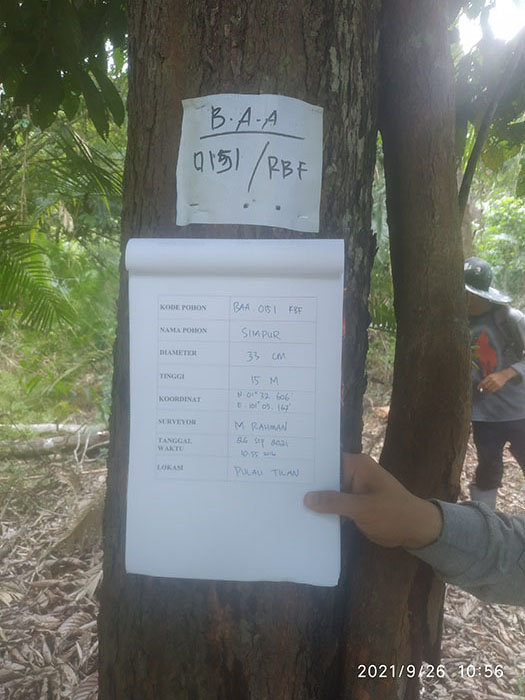 B.A.A
0151/RBF
KODE POHON BAA 0151 RBF
NAMA POHON SIMPUR
DIAMETER 33 CM
TINGGI 15 M
KOORDINAT N 01° 32' 606'
E 101° 05' 167'
SURVEYOR M RAHMAN
TANGGAL 26 SEP 2021
WAKTU 10:55 WIB
LOKASI PULAU TILAN
2021/9/26 10:56